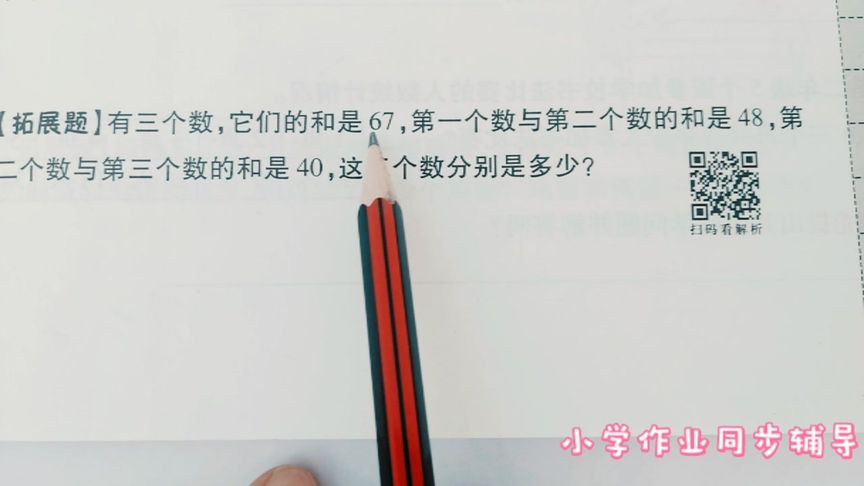 【拓展题】有三个数,它们的和是67,第一个数与第二个数的和是48,第
二个数与第三个数的和是40,这 个数分别是多少?
扫码看解析
小学作业同步辅导